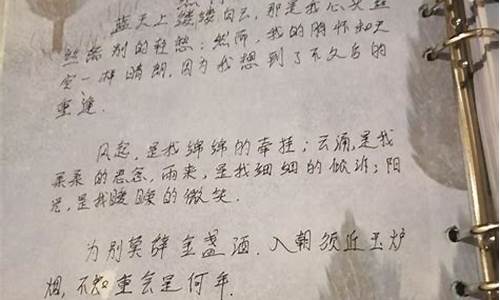 蓝天上缕缕白云,那是我心头丝
丝离别的轻愁;然而,我的胸怀和天
空一样晴朗,因为我想到了不久后的
重逢.
风起,是我绵绵的牵挂;云涌,是我
柔柔的思念,雨来,是我细细的倾诉;阳
光,是我暖暖的微笑.
为别莫辞金盏酒.入朝须近玉炉
烟,不知重会是何年.